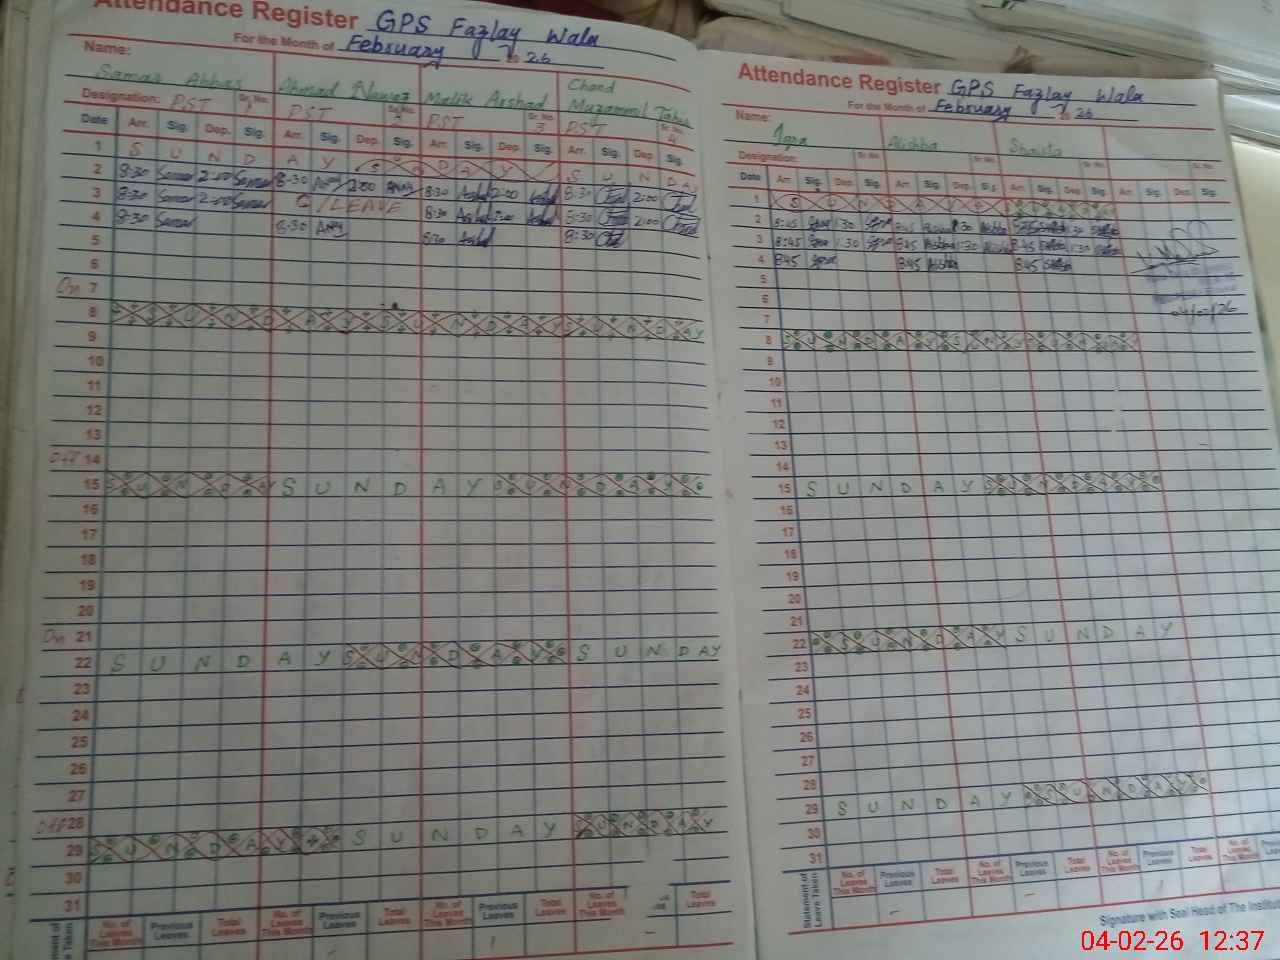 Attendance Register GPS Fazlay Wala
For the Month of February to 26
Name:
Samar Abbas Ahmad Nawaz Malik Arshad Chand Muzammil Tahir
Designation: PST Sr. No. PST Sr. No. PST Sr. No. 3 PST Sr. No. 4
Date Arr. Sig. Dep. Sig. Arr. Sig. Dep. Sig. Arr. Sig. Dep. Sig. Arr. Sig. Dep. Sig.
1 S U N D A Y S U N D A Y S U N D A Y
2 8:30 Samar 2:00 Samar 8:30 2:00 8:30 Arshad 2:00 Arshad 8:30 2:00
3 8:30 Samar 2:00 Samar C/LEAVE 8:30 Arshad 2:00 Arshad 8:30 2:00
4 8:30 Samar 8:30 8:30 Arshad 8:30
5
6
On 7
8 S U N D A Y S U N D A Y S U N D A Y
9
10
11
12
13
Off 14
15 S U N D A Y S U N D A Y S U N D A Y
16
17
18
19
20
On 21
22 S U N D A Y S U N D A Y S U N D A Y
23
24
25
26
27
Off 28
29 S U N D A Y S U N D A Y S U N D A Y
30
31
No. of Leaves This Month Previous Leaves Total Leaves No. of Leaves This Month Previous Leaves Total Leaves No. of Leaves This Month Previous Leaves Total Leaves No. of Leaves This Month Total Leaves
Attendance Register GPS Fazlay Wala
For the Month of February to 26
Name: Iqra Alishba Shaista
Designation: Sr. No. Sr. No. Sr. No. Sr. No.
Date Arr. Sig. Dep. Sig. Arr. Sig. Dep. Sig. Arr. Sig. Dep. Sig. Arr. Sig. Dep. Sig.
1 S U N D A Y
2 8:45 Iqra 1:30 Iqra 8:45 Alishba 1:30 Alishba 8:45 1:30
3 8:45 Iqra 1:30 Iqra 8:45 Alishba 1:30 Alishba 8:45 1:30
4 8:45 Iqra 8:45 Alishba 8:45
5
6
7
04/02/26
8 S U N D A Y S U N D A Y
9
10
11
12
13
14
15 S U N D A Y S U N D A Y
16
17
18
19
20
21
22 S U N D A Y S U N D A Y
23
24
25
26
27
28
29 S U N D A Y S U N D A Y
30
31
Statement of Leave Taken No. of Leaves This Month Previous Leaves Total Leaves No. of Leaves This Month Previous Leaves Total Leaves No. of Leaves This Month Previous Leaves Total Leaves No. of Leaves This Month Previous Leaves
Signature with Seal Head of The
04-02-26 12:37